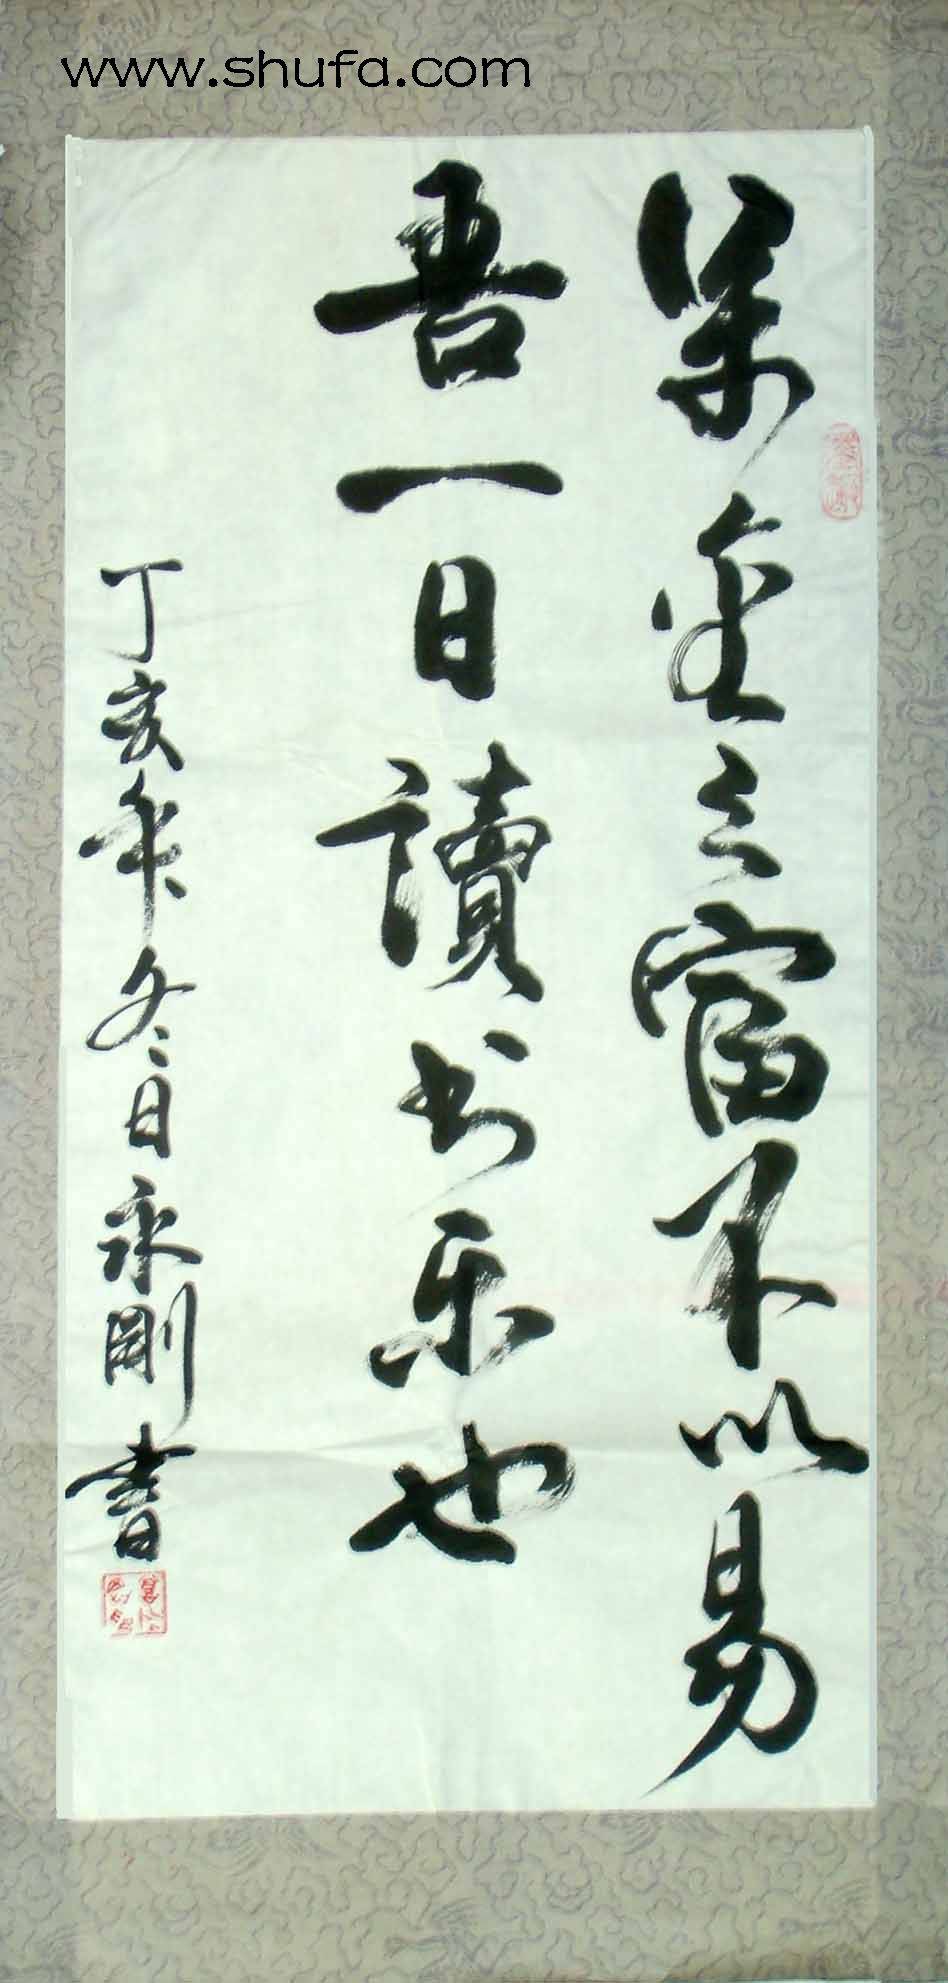 www.shufa.com
金之富不以易
吾一日讀书乐也
丁亥年冬日永剛書